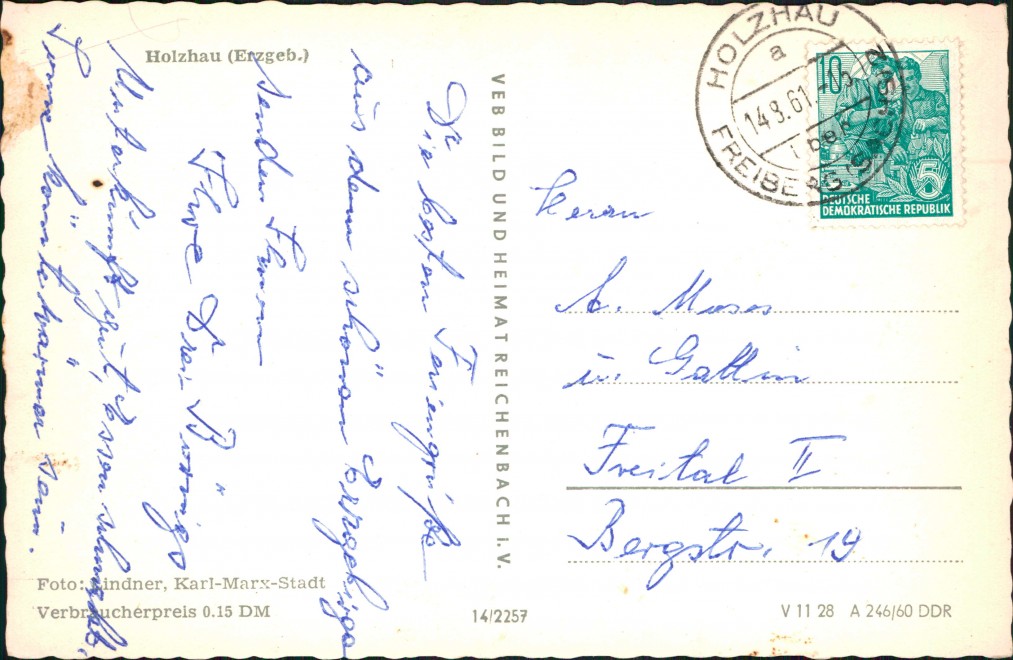 Holzhau (Erzgeb.)
Die besten Feriengrüße
aus dem schönen Erzgebirge
senden Ihnen
Ihre Drei
Unterkunft gut, Essen schmeckt,
Sonne könnte wärmer sein.
Foto: Lindner, Karl-Marx-Stadt
Verbraucherpreis 0.15 DM
VEB BILD UND HEIMAT REICHENBACH i. V.
14/2257
HOLZHAU
a
14.8.61
FREIBERG (SACHSEN)
10
5
DEUTSCHE
DEMOKRATISCHE REPUBLIK
Herrn
A. Moses
u. Gattin
Freital II
Bergstr. 19
V 11 28 A 246/60 DDR